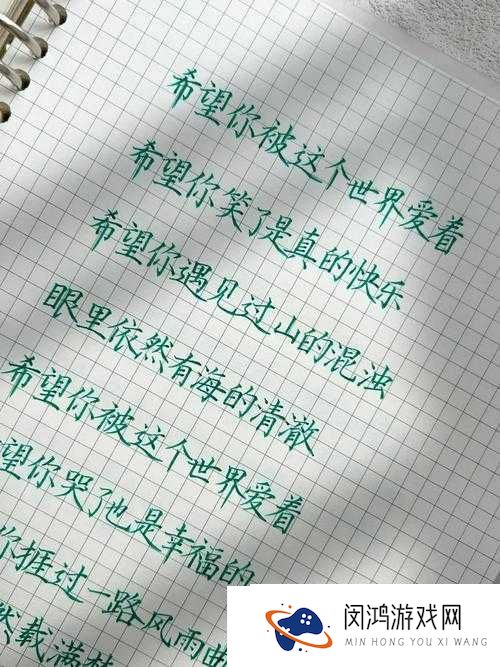 希望你被这个世界爱着
希望你笑了是真的快乐
希望你遇见过山的混浊
眼里依然有海的清澈
希望你被这个世界爱着
望你哭了也是幸福的
你捱过一路风雨曲
然载满
闵鸿游戏网
MIN HONG YOU XI WANG